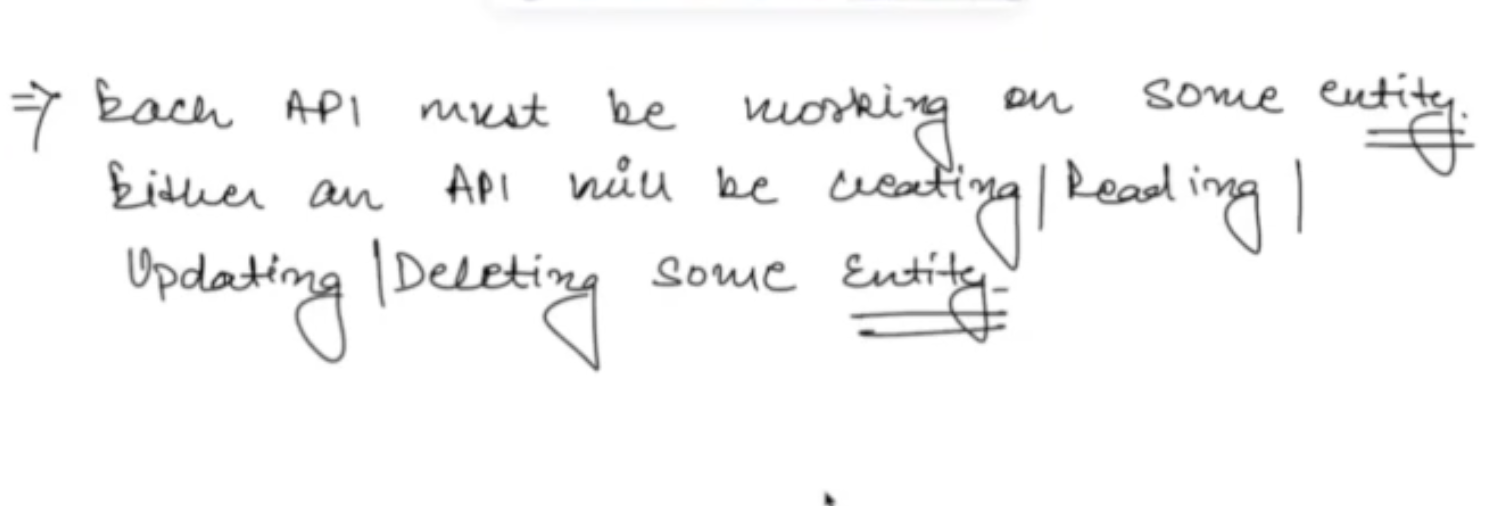 ⇒ Each API must be working on some entity.
Either an API will be creating | Reading |
Updating | Deleting some Entity.